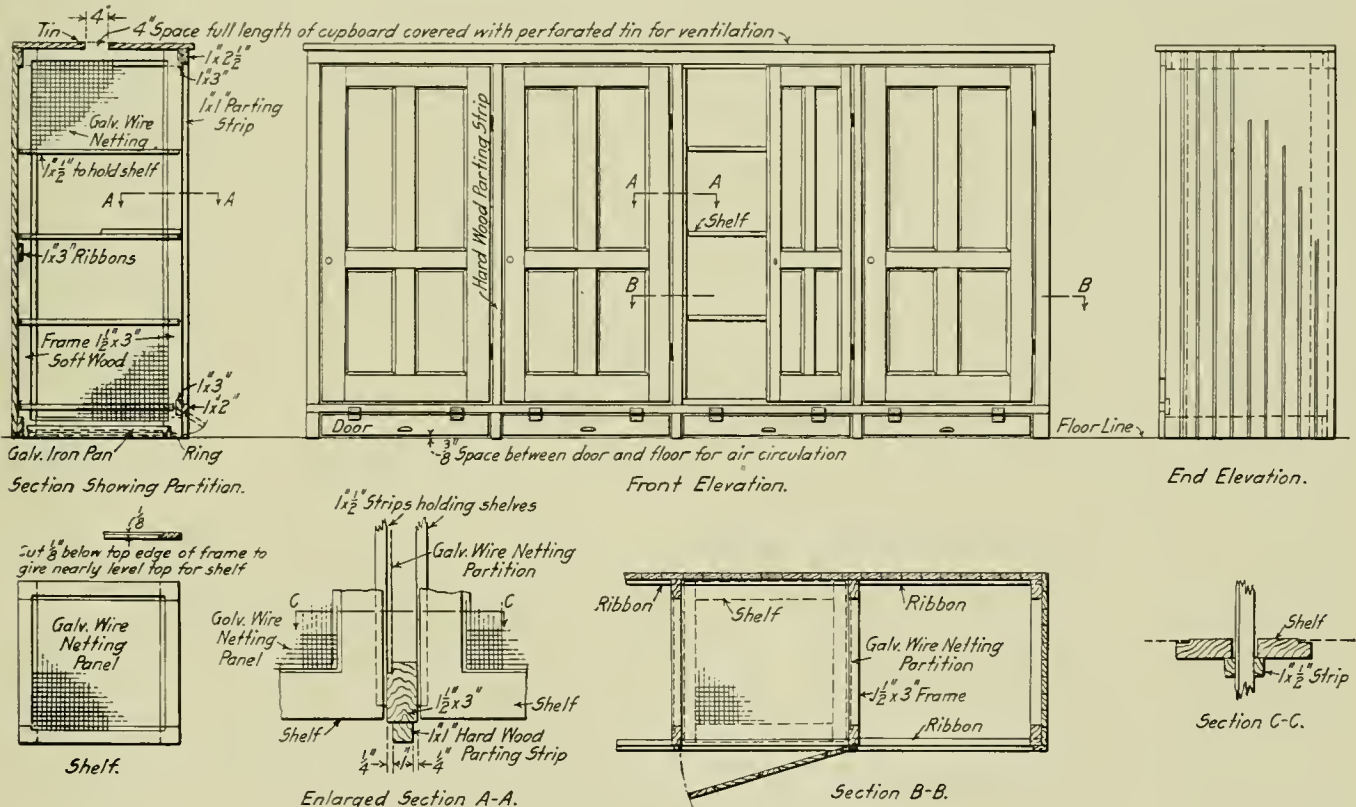 4"
Tin
4" Space full length of cupboard covered with perforated tin for ventilation
1"x2½"
1"x3"
1"x1" Parting
Strip
Galv. Wire
Netting
1"x½" to hold shelf
A
A
1"x3" Ribbons
Frame 1½"x3"
Soft Wood
1"x3"
1"x2"
Galv. Iron Pan
Ring
Section Showing Partition.
Hard Wood Parting Strip
A
A
Shelf
B
B
Door
⅜" Space between door and floor for air circulation
Floor Line
Front Elevation.
End Elevation.
⅛"
Cut ⅛" below top edge of frame to
give nearly level top for shelf
Galv. Wire
Netting
Panel
Shelf.
1"x½" Strips holding shelves
Galv. Wire Netting
Partition
C
C
Galv. Wire
Netting
Panel
1½"x3"
Shelf
Shelf
1"x1" Hard Wood
Parting Strip
¼"
1"
¼"
Enlarged Section A-A.
Ribbon
Shelf
Ribbon
Galv. Wire Netting
Partition
1½"x3" Frame
Ribbon
Section B-B.
Shelf
1"x½" Strip
Section C-C.